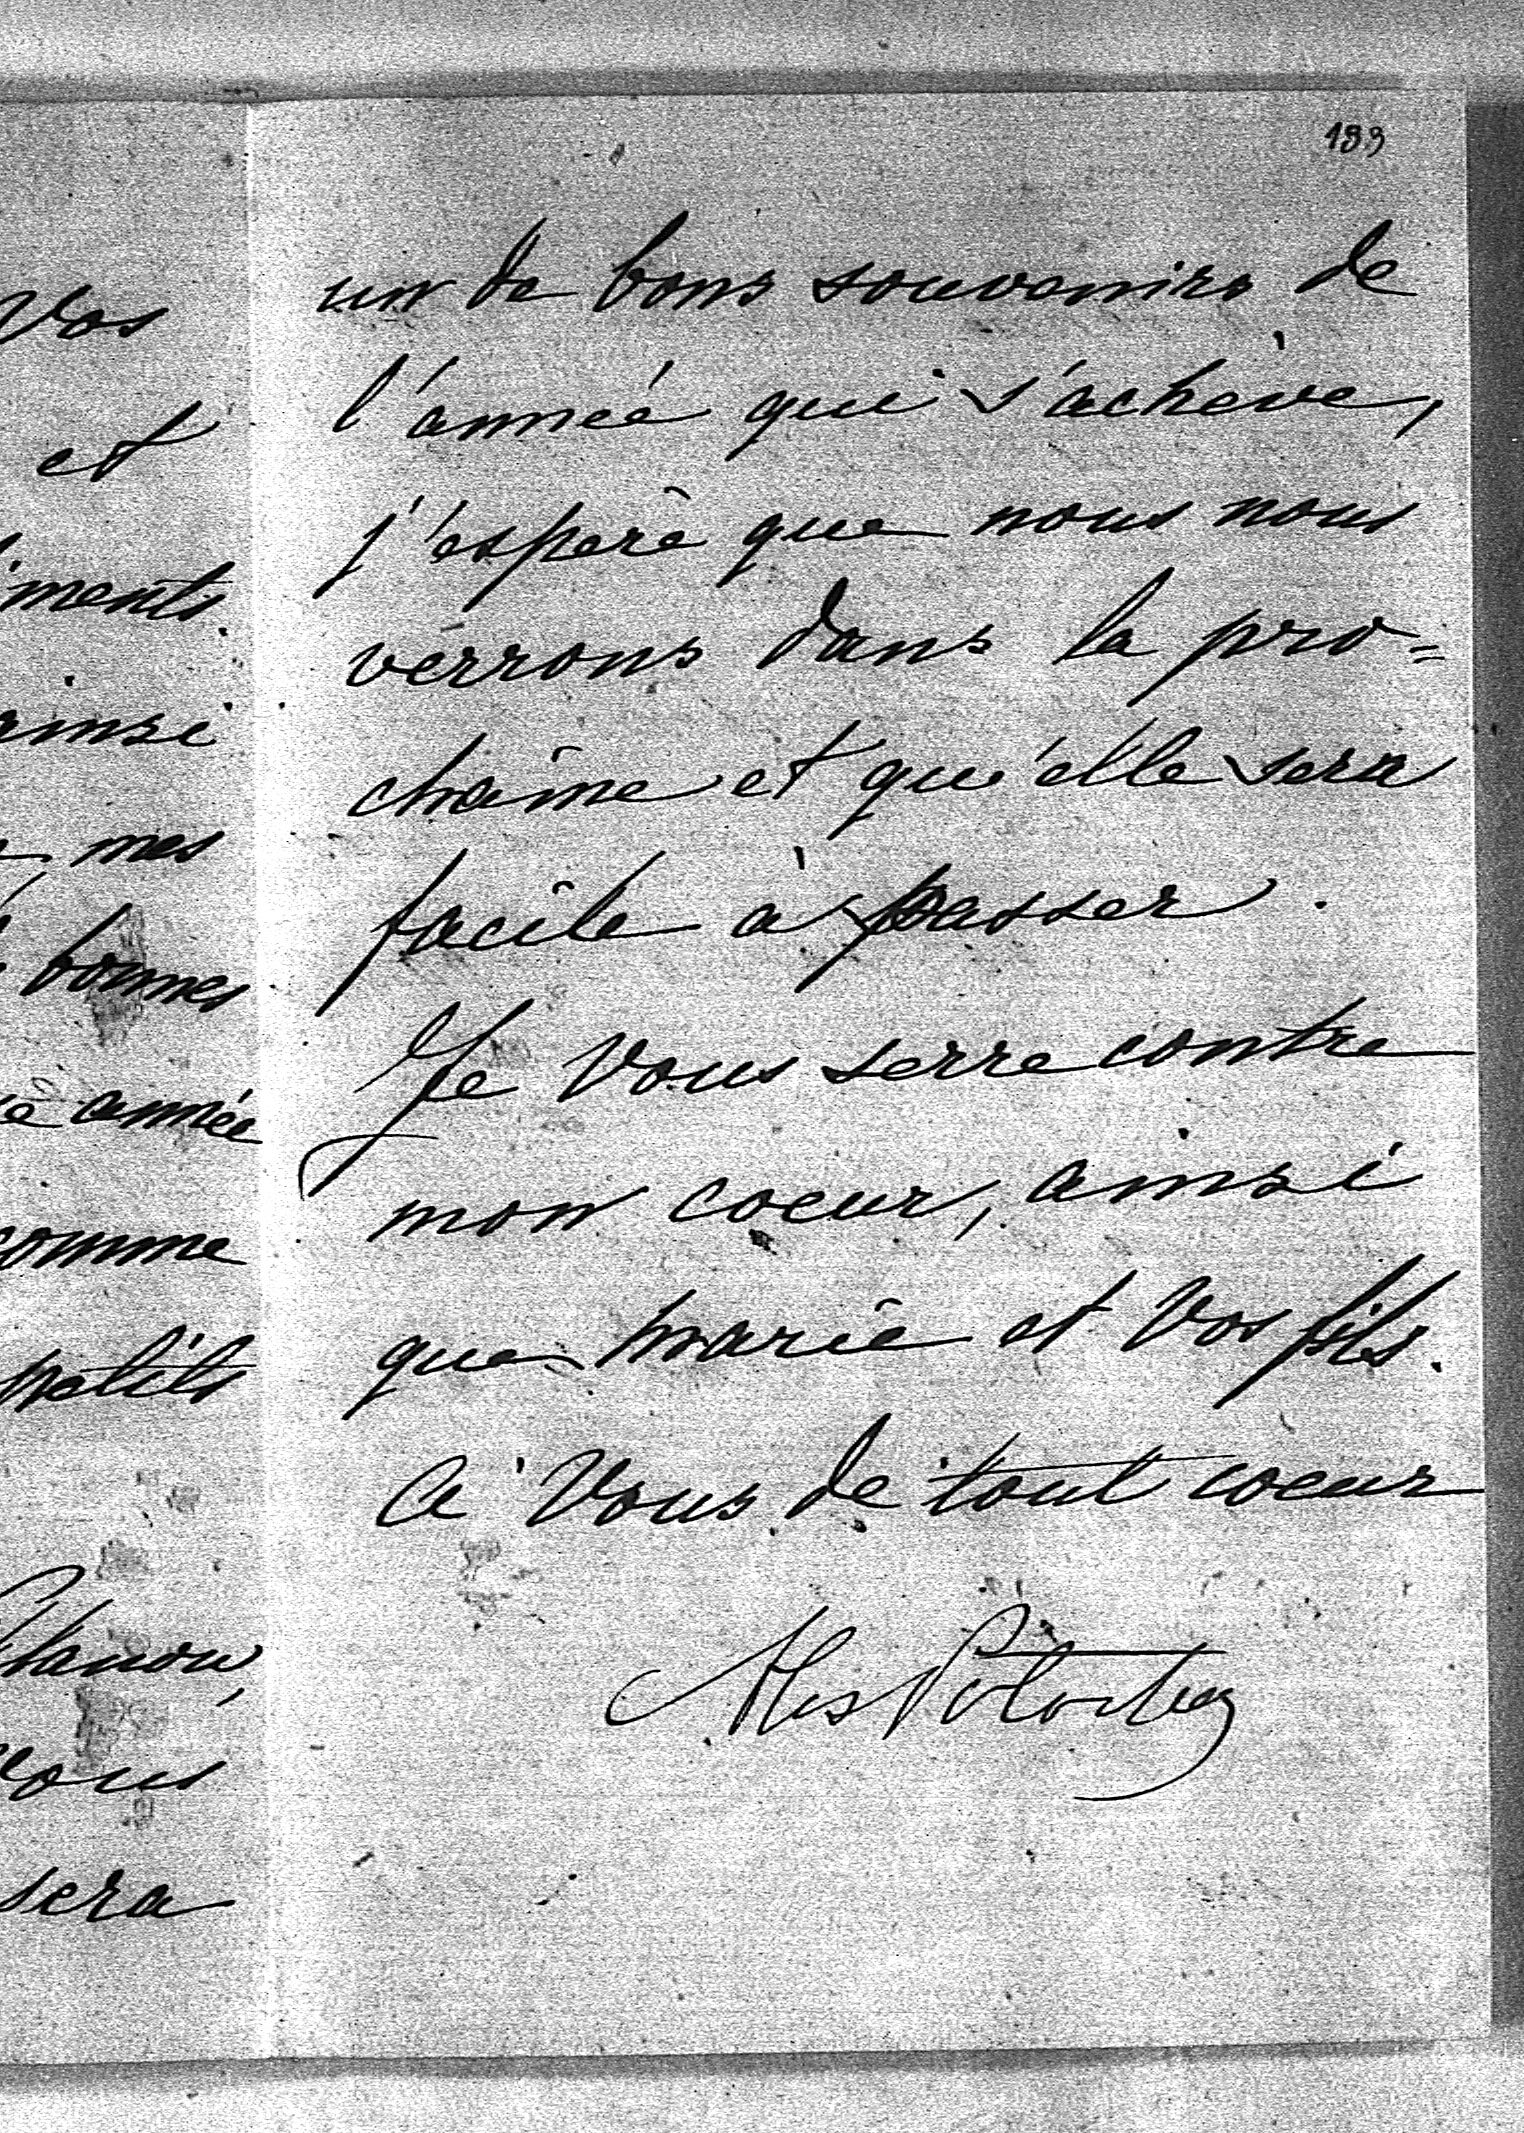 183
vos
et
ments.
ainsi
mes
bonnes
année
comme
petits
vous
sera
un de bons souvenirs de
l'année qui s'achève,
j'espère que nous nous
verrons dans la pro=
chaine et qu'elle sera
facile à passer.
Je vous serre contre
mon coeur, ainsi
que Marie et vos fils.
A vous de tout coeur